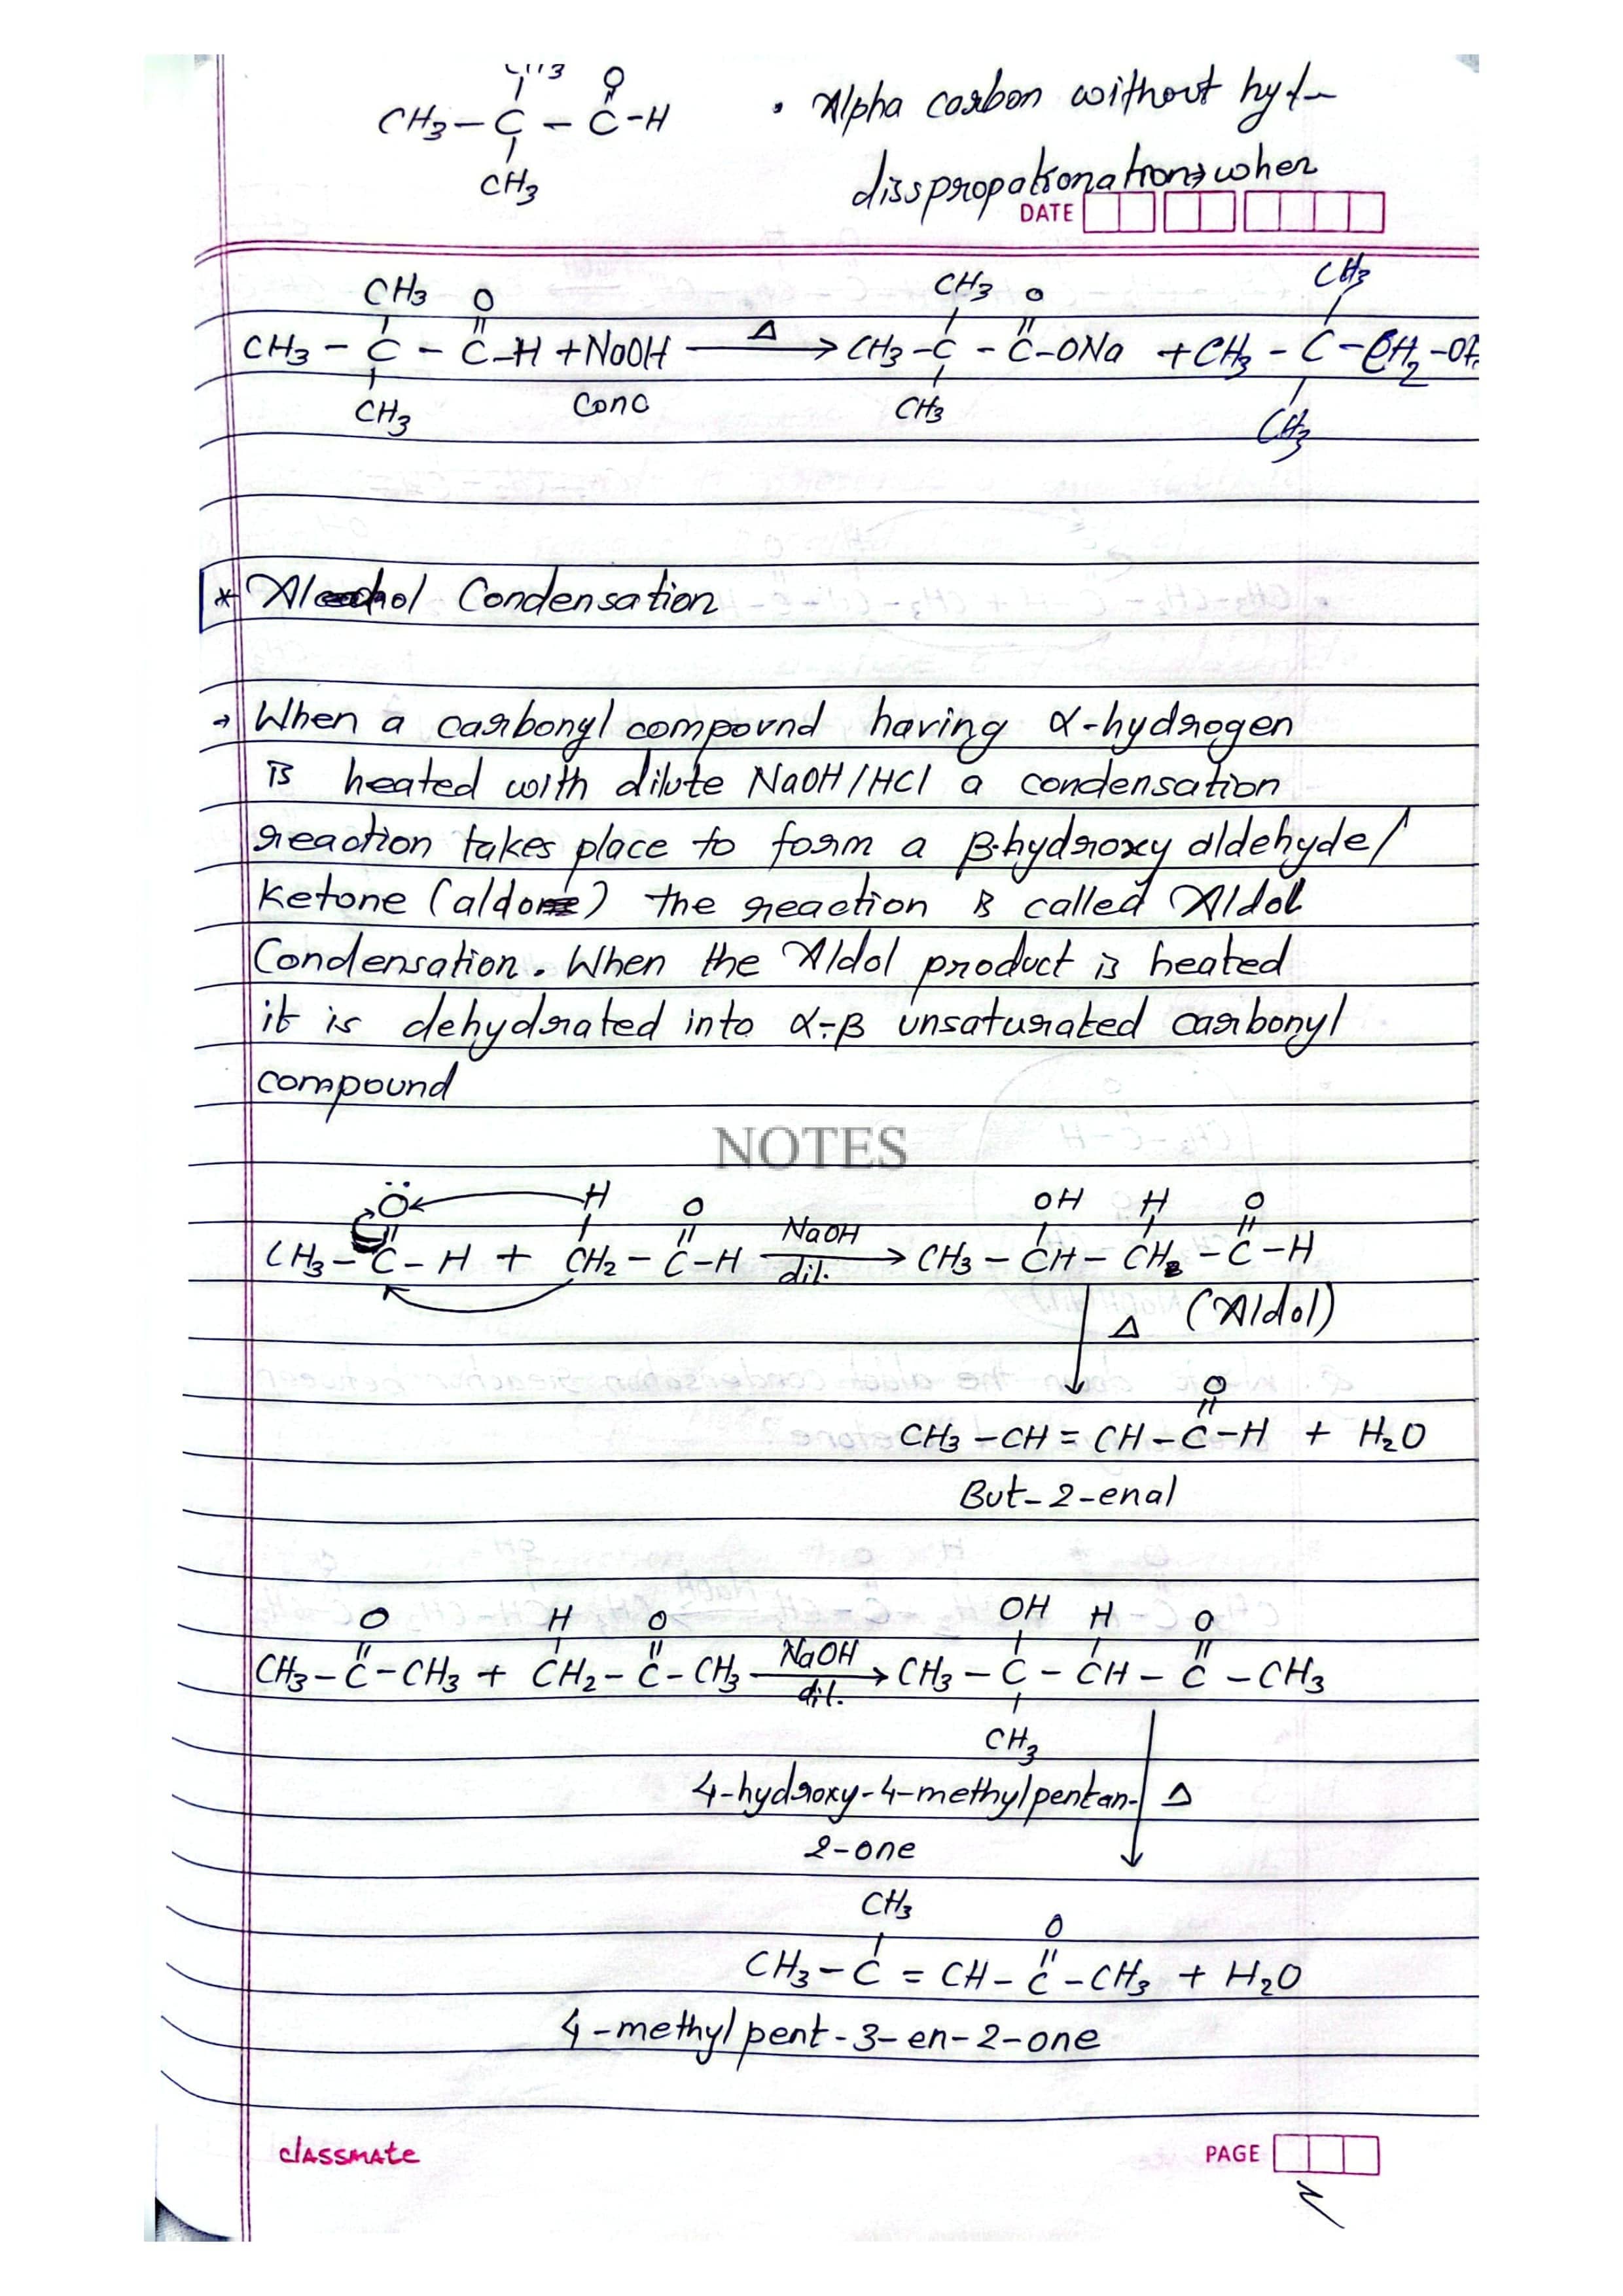 CH3 O
CH3 – C – C – H • Alpha carbon without hyd
CH3
disspropationation → when
DATE
CH3 O CH3 O CH3
CH3 – C – C – H + NaOH Δ → CH3 – C – C – ONa + CH3 – C – CH2 – OH
CH3 Conc CH3 CH3
* Alcohol Condensation
→ When a carbonyl compound having α-hydrogen
is heated with dilute NaOH/HCl a condensation
reaction takes place to form a β-hydroxy aldehyde/
Ketone (aldol) the reaction is called Aldol
Condensation. When the Aldol product is heated
it is dehydrated into α-β unsaturated carbonyl
compound
NOTES
O H O OH H O
CH3 – C – H + CH2 – C – H NaOH dil. → CH3 – CH – CH – C – H
Δ (Aldol)
O
CH3 – CH = CH – C – H + H2O
But-2-enal
O H O OH H O
CH3 – C – CH3 + CH2 – C – CH3 NaOH dil. → CH3 – C – CH – C – CH3
CH3
4-hydroxy-4-methylpentan- Δ
2-one
CH3 O
CH3 – C = CH – C – CH3 + H2O
4-methylpent-3-en-2-one
classmate PAGE